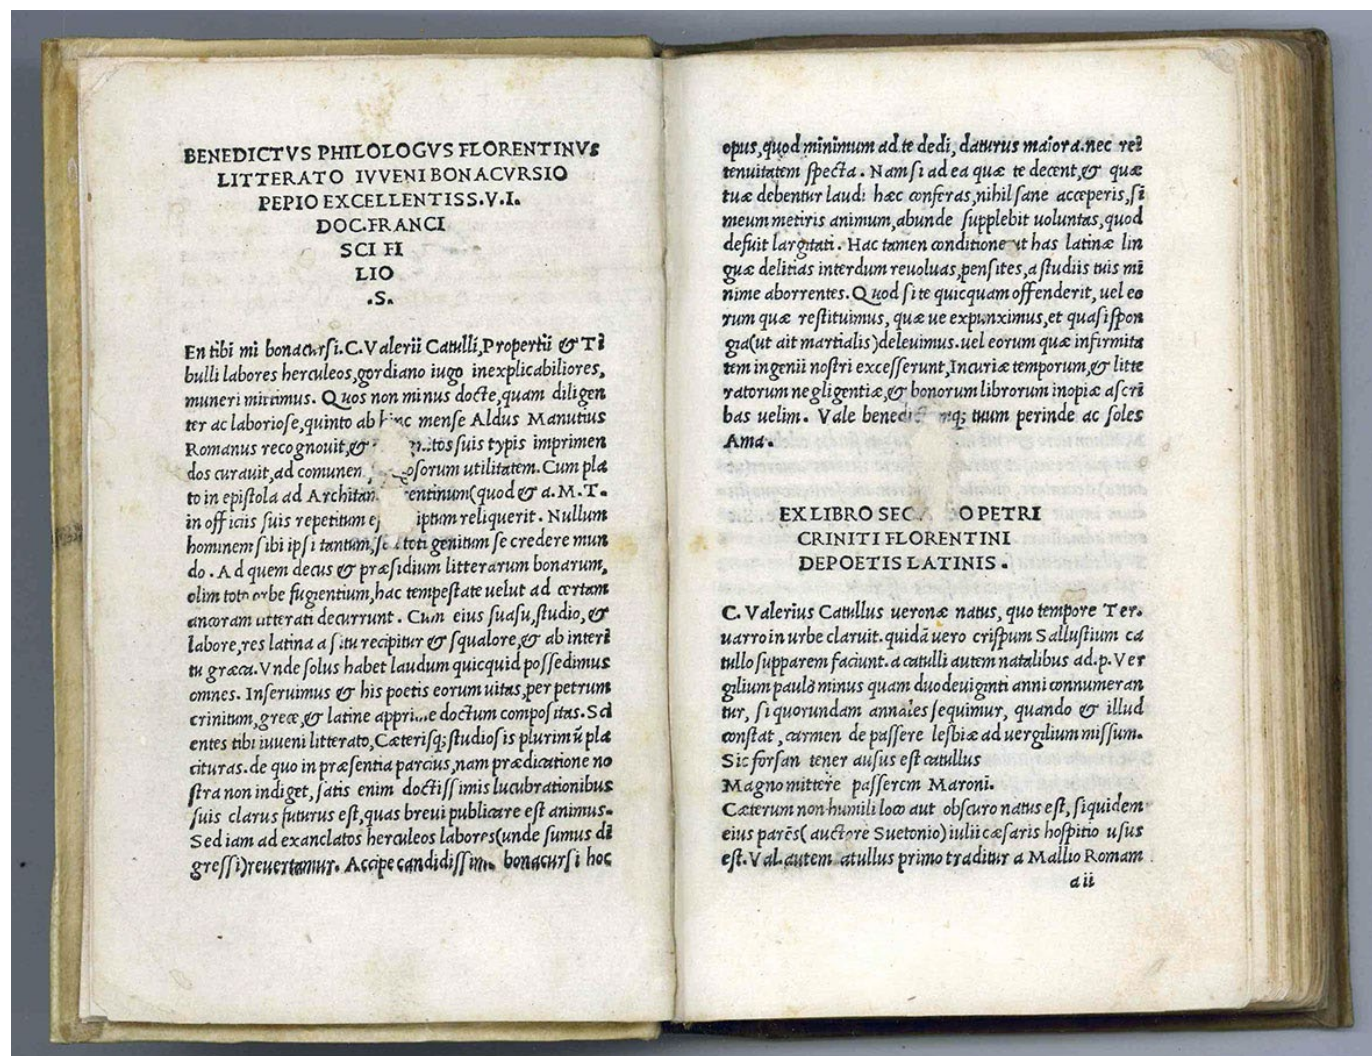 BENEDICTVS PHILOLOGVS FLORENTINVS
LITTERATO IVVENI BONACVRSIO
PEPIO EXCELLENTISS.V.I.
DOC.FRANCI
SCI FI
LIO
.S.
En tibi mi bonacursi.C.Valerii Catulli,Propertii & Ti
bulli labores herculeos,gordiano iugo inexplicabiliores,
muneri mittimus. Quos non minus docte,quam diligen
ter ac laboriose,quinto ab hinc mense Aldus Manutius
Romanus recognouit,& suis typis imprimen
dos curauit,ad comunem utilitatem. Cum pla
to in epistola ad (quod & a.M.T.
in officiis suis repetitum reliquerit. Nullum
hominem sibi ipsi tantum,sed toti genitum se credere mun
do. Ad quem decus & præsidium litterarum bonarum,
olim toto orbe fugientium,hac tempestate uelut ad certam
ancoram litterati decurrunt. Cum eius suasu,studio,&
labore,res latina a situ recipitur & squalore,& ab interi
tu græca.Vnde solus habet laudum quicquid possedimus
omnes. Inseruimus & his poetis eorum uitas,per petrum
crinitum,grece,& latine apprime doctum compositas.Sci
entes tibi iuueni litterato,Cæterisq; studiosis plurimũ pla
cituras.de quo in præsentia parcius,nam prædicatione no
stra non indiget,satis enim doctissimis lucubrationibus
suis clarus futurus est,quas breui publicare est animus.
Sed iam ad exanclatos herculeos labores(unde sumus di
gressi)reuertamur. Accipe candidissime bonacursi hoc
opus,quod minimum ad te dedi, daturus maiora.nec rei
tenuitatem specta. Nam si ad ea quæ te decent,& quæ
tuæ debentur laudi hæc conferas,nihil sane acceperis,si
meum metiris animum,abunde supplebit uoluntas,quod
defuit largitati. Hac tamen conditione ut has latinæ lin
guæ delitias interdum reuoluas,pensites,a studiis tuis mi
nime aborrentes. Quod si te quicquam offenderit, uel eo
rum quæ restituimus, quæ ue expunximus,et quasi spon
gia(ut ait martialis)deleuimus.uel eorum quæ infirmita
tem ingenii nostri excesserunt,Incuriæ temporum,& litte
ratorum negligentiæ,& bonorum librorum inopiæ ascri
bas uelim. Vale tuum perinde ac soles
Ama.
EX LIBRO SECVNDO PETRI
CRINITI FLORENTINI
DEPOETIS LATINIS.
C. Valerius Catullus ueronæ natus, quo tempore Ter.
uarro in urbe claruit.quidã uero crispum Sallustium ca
tullo supparem faciunt.a catulli autem natalibus ad.p.Ver
gilium paulo minus quam duodeuiginti anni connumeran
tur, si quorundam annales sequimur, quando & illud
constat,carmen de passere lesbiæ ad uergilium missum.
Sic forsan tener ausus est catullus
Magno mittere passerem Maroni.
Cæterum non humili loco aut obscuro natus est, siquidem
eius parẽs(auctore Suetonio)iulii cæsaris hospitio usus
est.Val.autem atullus primo traditur a Mallio Romam
a ii